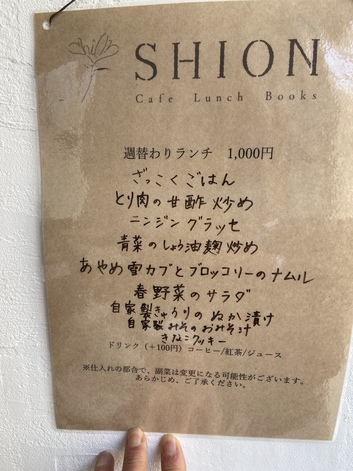 SHION
Cafe Lunch Books
週替わりランチ 1,000円
ざっこくごはん
とり肉の甘酢炒め
ニンジングラッセ
青菜のしょう油麹炒め
あやめ雪カブとブロッコリーのナムル
春野菜のサラダ
自家製きゅうりのぬか漬け
自家製みそのおみそ汁
きなこクッキー
ドリンク(+100円)コーヒー/紅茶/ジュース
※仕入れの都合で、副菜は変更になる可能性がございます。
あらかじめ、ご了承ください。